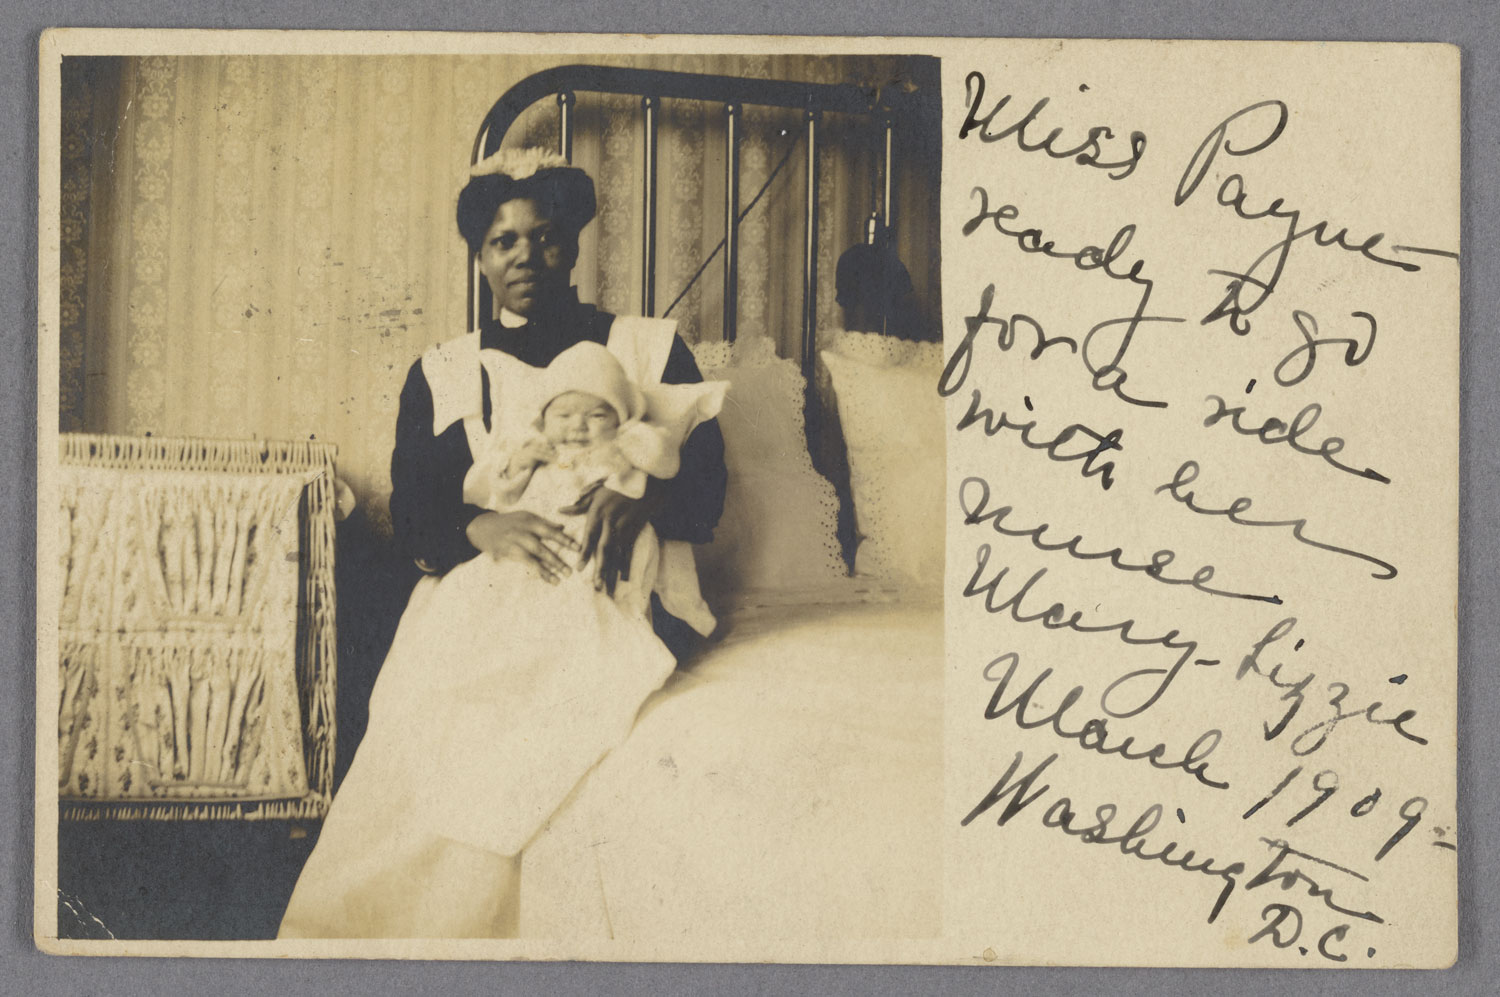 Miss Payne
ready to go
for a ride
with her
nurse
Mary-Lizzie
March 1909-
Washington
D.C.